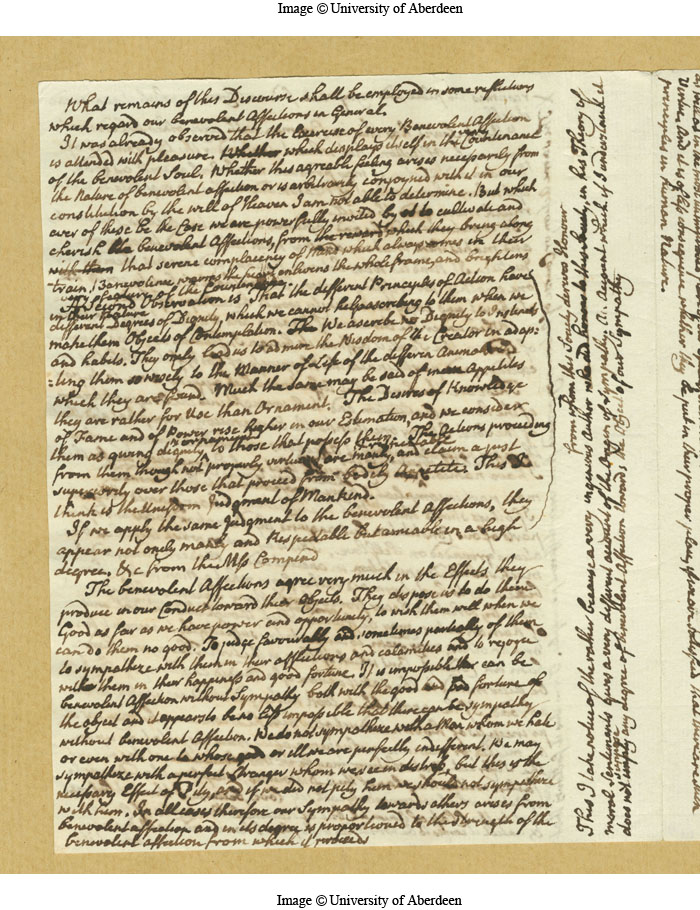 Image © University of Aberdeen
What remains of this Discourse shall be employed in some reflections
which regard our benevolent Affections in General.
It was already observed that the Exercise of every Benevolent Affection
is attended with pleasure. Whether which displays itself in the Countenance
of the benevolent Soul. Whether this agreable feeling arises necessarily from
the Nature of benevolent affection or is arbitrarily conjoyned with it in our
constitution by the will of Heaven I am not able to determine. But which
ever of these be the Case we are powerfully invited by it to cultivate and
cherish the benevolent Affections, from the reward which they bring along
with them that serene complacency of mind which always comes in their
train. Benevolence warms the heart enlivens the whole frame, and brightens
every feature of the Countenance
A Second Observation is, That the different Principles of Action have
in their Nature
different Degrees of Dignity, which we cannot help ascribing to them when we
make them Objects of Contemplation. The We ascribe no Dignity to Instincts
and habits. They onely lead us to admire the Wisdom of the Creator in adap:
:ting them so wisely to the Manner of Life of the different Animals
which they are found. Much the same may be said of Appetites
they are rather for Use than Ornament. The Desires of Knowledge
of Fame and of Power rise higher in our Estimation, and we consider
them as giving dignity to those that possess them. The Actions proceeding
from them though not properly virtuous are manly, and claim a just
superiority over those that proceed from bodily Appetites. This I
think is the Uniform Judgment of Mankind.
If we apply the same Judgment to the benevolent Affections, they
appear not onely manly and Respectable but amiable in a high
degree, &c from the Mss Compend
The benevolent Affections agree very much in the Effects they
produce in our Conduct toward their Objects. They dispose us to do them
Good as far as we have power and opportunity, to wish them well when we
can do them no good. To judge favourably and sometimes partially of them
to sympathize with them in their afflictions and calamities and to rejoyce
with them in their happiness and good fortune. It is impossible there can be
benevolent Affection without Sympathy both with the good and bad fortune of
the object and it appears to be no less impossible that there can be sympathy
without benevolent Affection. We do not sympathize with a Man whom we hate
or even with one to whose good or ill we are perfectly indifferent. We may
sympathize with a perfect Stranger whom we see in distress, but this is the
necessary Effect of Pity, and if we did not pity him we should not sympathize
with him. In all cases therefore our Sympathy towards others arises from
benevolent affection and in its degree is proportioned to the Strength of the
benevolent affection from which it proceeds
from whom this Society derives Honour
This I take notice of the rather because a very ingenious Author in his Theory of
moral Sentiments gives a very different account of the Origin of Sympathy. An Account which if I understand it
does not imply any degree of benevolent Affection towards the Object of our Sympathy
principles in human Nature.
Image © University of Aberdeen